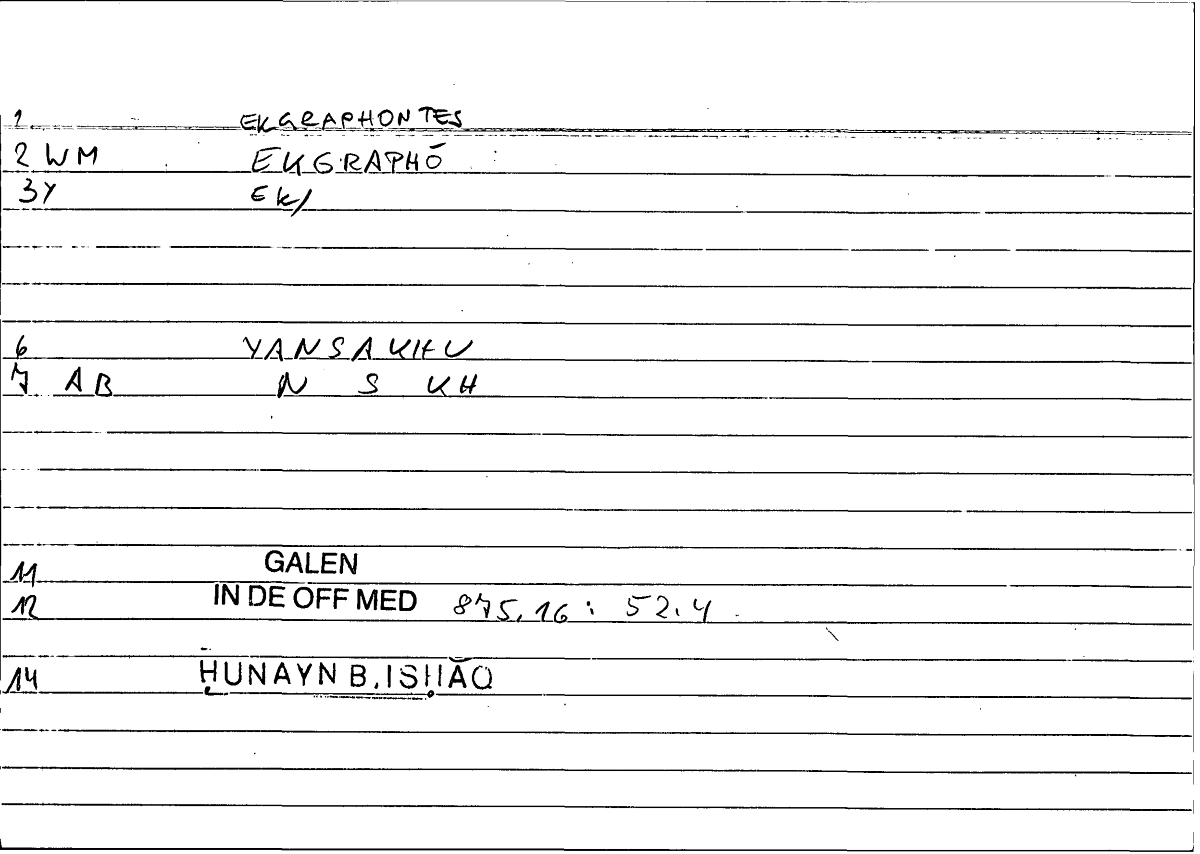 1 EKGRAPHONTES
2 WM EKGRAPHŌ
3Y EK/
6 YANSAKHU
7 AB N S KH
11 GALEN
12 IN DE OFF MED 875,16 : 52.4
14 ḤUNAYN B. ISḤĀQ